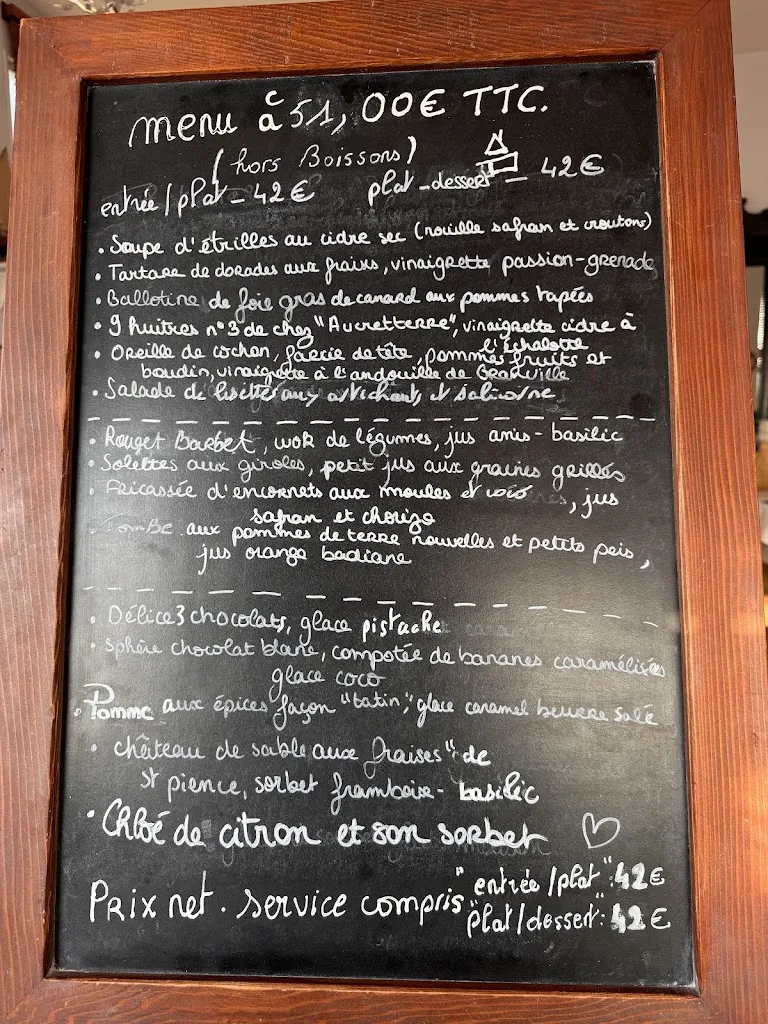 menu à 51,00€ TTC.
(hors Boissons)
entrée/plat - 42€ plat-dessert - 42€
• Soupe d'étrilles au cidre sec (rouille safran et croutons)
• Tartare de dorades aux fraixs, vinaigrette passion-grenade
• Ballotine de foie gras de canard aux pommes tapées
• 9 huitres n°3 de chez "Aucretterre", vinaigrette cidre à
l'échalotte
• Oreille de cochon, farcie de tête, pommes fruits et
boudin, vinaigrette à l'andouille de Granville
• Salade de aux artichauts et salicorne
• Rouget Barbet, wok de légumes, jus anis-basilic
• Solettes aux giroles, petit jus aux graines grillés
• Fricassée d'encornets aux moules et , jus
safran et chorizo
aux pommes de terre nouvelles et petits pois,
jus orange badiane
• Délice 3 chocolats, glace pistache
• Sphère chocolat blanc, compotée de bananes caramélisées
glace coco
• Pomme aux épices façon "tatin", glace caramel beurre salé
• château de sable aux fraises" de
St pience, sorbet framboise-basilic
• Chloé de citron et son sorbet
Prix net. service compris "entrée/plat": 42€
"plat/dessert": 42€